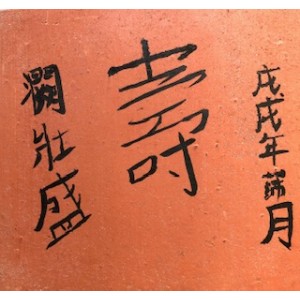 戊戌年蒲月
壽
瀾壯盛